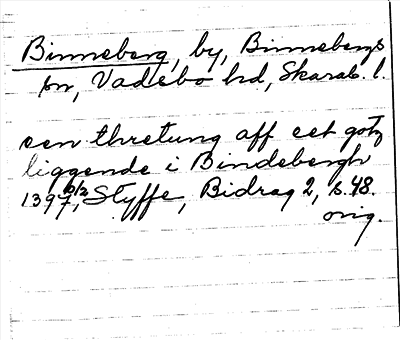 Binneberg, by, Binnebergs
sn, Vadsbo hd, Skarab. l.
een thretung aff eet gotz
liggende i Bindebergh
1397 6/2, Styffe, Bidrag 2, s. 48.
orig.